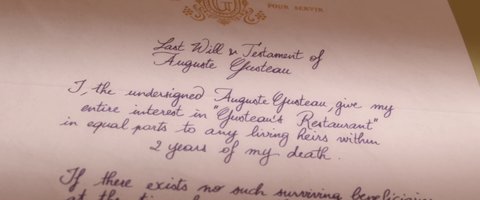 G
POUR SERVIR
Last Will & Testament of
Auguste Gusteau
I, the undersigned Auguste Gusteau, give my
entire interest in "Gusteau's Restaurant"
in equal parts to any living heirs within
2 years of my death.
If there exists no such surviving
at the